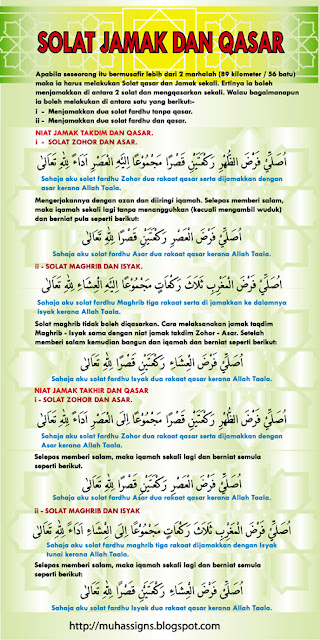 SOLAT JAMAK DAN QASAR
Apabila seseorang itu bermusafir lebih dari 2 marhalah (89 kilometer / 56 batu)
maka ia harus melakukan Solat qasar dan Jamak sekali. Ertinya ia boleh
menjamakkan di antara 2 solat dan mengqasarkan sekali. Walau bagaimanapun
ia boleh melakukan di antara satu yang berikut:-
i - Menjamakkan dua solat fardhu tanpa qasar.
ii - Menjamakkan dua solat fardhu dan qasar.
NIAT JAMAK TAKDIM DAN QASAR.
i - SOLAT ZOHOR DAN ASAR.
اُصَلِّيْ فَرْضَ الظُّهْرِ رَكْعَتَيْنِ قَصْرًا مَجْمُوْعًا اِلَيْهِ الْعَصْرِ اَدَاءً لِلّٰهِ تَعَالٰى
Sahaja aku solat fardhu Zohor dua rakaat qasar serta dijamakkan dengan
asar kerana Allah Taala.
Mengerjakannya dengan azan dan diiringi iqamah. Selepas memberi salam,
maka iqamah sekali lagi tanpa menangguhkan (kecuali mengambil wuduk)
dan berniat pula seperti berikut:
اُصَلِّيْ فَرْضَ الْعَصْرِ رَكْعَتَيْنِ قَصْرًا لِلّٰهِ تَعَالٰى
Sahaja aku solat fardhu Asar dua rakaat qasar kerana Allah Taala.
ii - SOLAT MAGHRIB DAN ISYAK.
اُصَلِّيْ فَرْضَ الْمَغْرِبِ ثَلَاثَ رَكَعَاتٍ مَجْمُوْعًا اِلَيْهِ الْعِشَاءِ لِلّٰهِ تَعَالٰى
Sahaja aku solat fardhu Maghrib tiga rakaat serta di jamakkan ke dalamnya
isyak kerana Allah Taala.
Solat maghrib tidak boleh diqasarkan. Cara melaksanakan jamak taqdim
Maghrib - Isyak sama dengan niat jamak takdim Zohor - Asar. Setelah
memberi salam kemudian bangun dan iqamah dan berniat seperti berikut:
اُصَلِّيْ فَرْضَ الْعِشَاءِ رَكْعَتَيْنِ قَصْرًا لِلّٰهِ تَعَالٰى
Sahaja aku solat fardhu Isyak dua rakaat qasar kerana Allah Taala.
NIAT JAMAK TAKHIR DAN QASAR
i - SOLAT ZOHOR DAN ASAR.
اُصَلِّيْ فَرْضَ الظُّهْرِ رَكْعَتَيْنِ قَصْرًا مَجْمُوْعًا اِلَى الْعَصْرِ اَدَاءً لِلّٰهِ تَعَالٰى
Sahaja aku solat fardhu Zohor dua rakaat qasar serta dijamakkan dengan
Asar kerana Allah Taala.
Selepas memberi salam, maka iqamah sekali lagi dan berniat semula
seperti berikut.
اُصَلِّيْ فَرْضَ الْعَصْرِ رَكْعَتَيْنِ قَصْرًا لِلّٰهِ تَعَالٰى
Sahaja aku solat fardhu Asar dua rakaat qasar kerana Allah Taala.
ii - SOLAT MAGHRIB DAN ISYAK
اُصَلِّيْ فَرْضَ الْمَغْرِبِ ثَلَاثَ رَكَعَاتٍ مَجْمُوْعًا اِلَى الْعِشَاءِ اَدَاءً لِلّٰهِ تَعَالٰى
Sahaja aku solat fardhu maghrib tiga rakaat dijamakkan dengan Isyak
tunai kerana Allah Taala.
Selepas memberi salam, maka iqamah sekali lagi dan berniat semula
seperti berikut:
اُصَلِّيْ فَرْضَ الْعِشَاءِ رَكْعَتَيْنِ قَصْرًا لِلّٰهِ تَعَالٰى
Sahaja aku solat fardhu Isyak dua rakaat qasar kerana Allah Taala.
http://muhassigns.blogspot.com